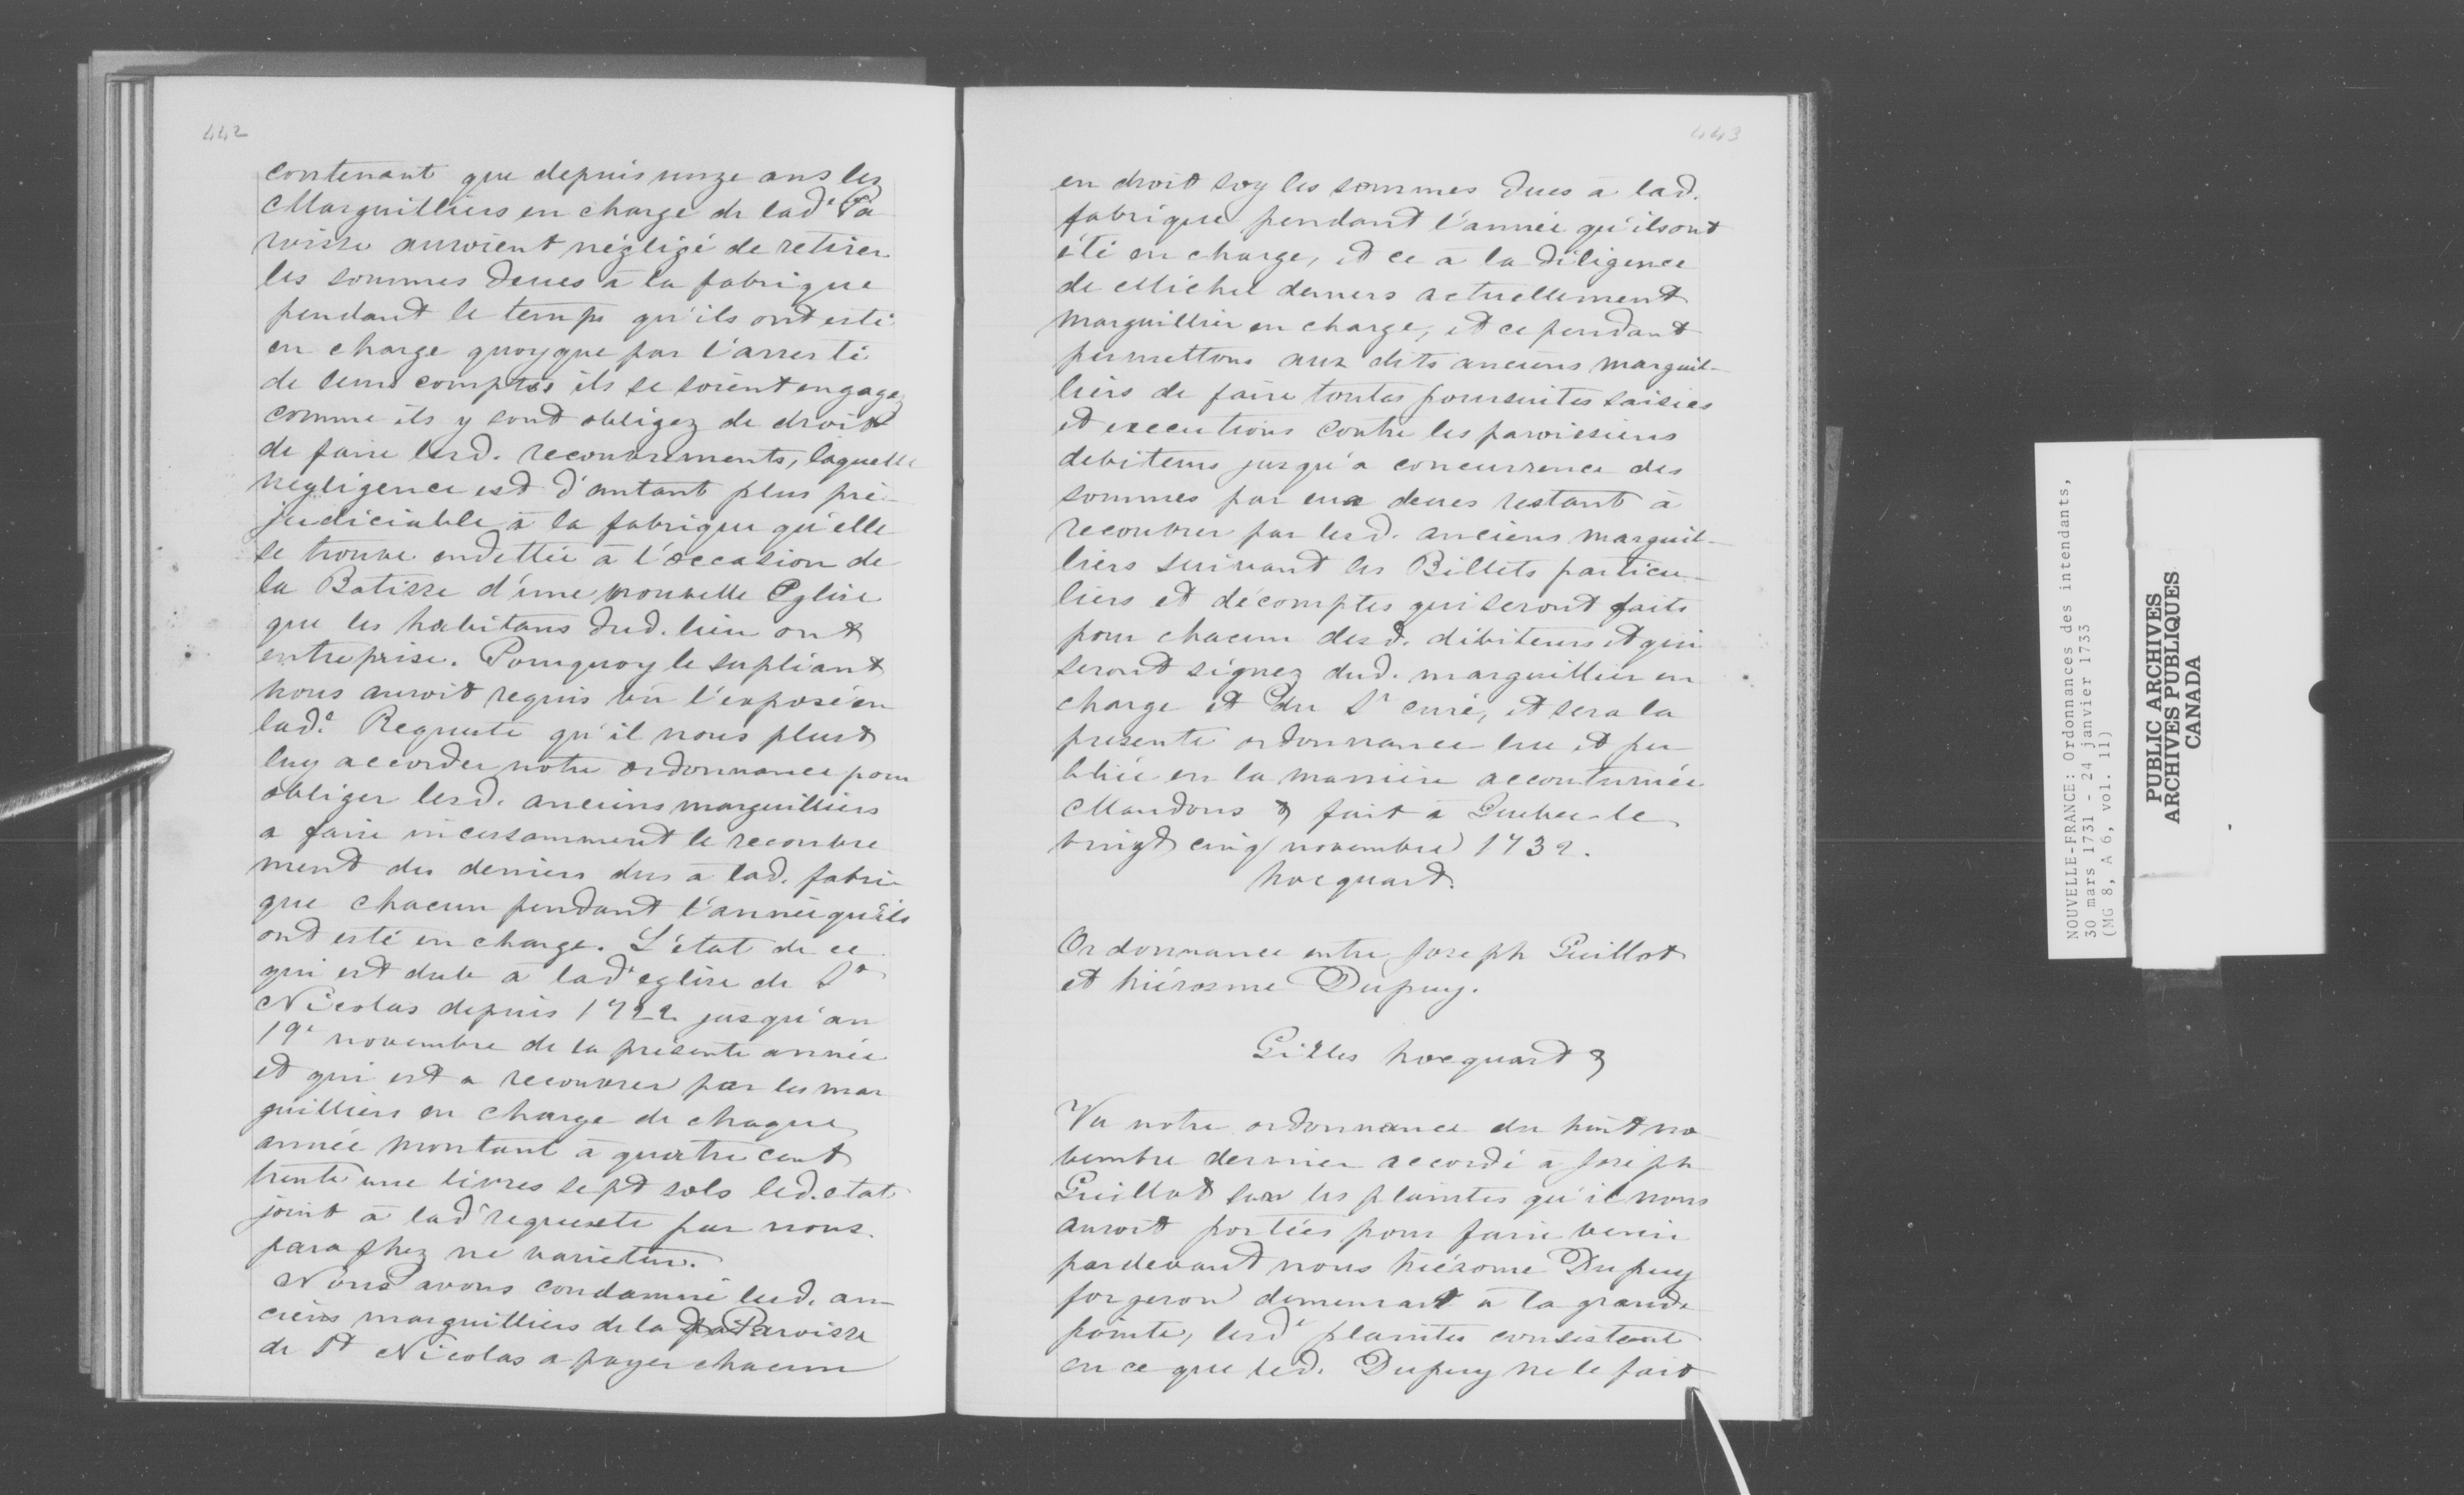 442
contenant que depuis unze ans les
Marguilliers en charge de lad.e Pa
roisse auroient négligé de retirer
les sommes deues à la fabrique
pendant le temps qu'ils ont esté
en charge quoyque par l'arresté
de leurs comptes ils se soient engagez
comme ils y sont obligez de droit
de faire lesd. recouvrements, laquelle
negligence est d'autant plus pré-
judiciable à la fabrique qu'elle
se trouve endettée à l'occasion de
la Batisse d'une nouvelle Eglise
que les habitans dud. lieu ont
entreprise. Pourquoy le supliant
nous auroit requis vû l'exposé en
lad.e Requeste qu'il nous plust
luy accorder notre ordonnance pour
obliger lesd. anciens marguilliers
a faire incessamment le recouvre
ment des deniers dus a lad. fabri-
que chacun pendant l'année qu'ils
ont esté en charge. L'état de ce
qui est dub à lad.e eglise de St
Nicolas depuis 1722 jusqu'au
19e novembre de la presente année
et qui est a recouvrer par les mar
guilliers en charge de chaque
année montant à quatre cent
trente une livres sept sols led. etat
joint à lad.e requeste par nous
paraphez ne varietur.
Nous avons condamné lesd. an-
ciens marguilliers de la Paroisse
de St Nicolas a payer chacun
443
en droit soy les sommes dues à lad.
fabrique pendant l'année qu'ils ont
été en charge, et ce a la diligence
de Michel demers actuellement
marguillier en charge, et cependant
permettons aux dits anciens marguil-
liers de faire toutes poursuites saisies
et executions contre les paroissiens
debiteurs jusqu'a concurrence des
sommes par eux deues restant à
recouvrer par lesd. anciens marguil-
liers suivant les Billets particu-
liers et décomptes qui seront faits
pour chacun desd. débiteurs et qui
seront signez dud. marguillier en
charge et du Sr curé, et sera la
presente ordonnance lue et pu-
bliée en la maniere accoutumée
Mandons & fait à Quebec le
vingt cinq novembre 1732.
hocquart.
Ordonnance entre Joseph Guillot
et hiérosme Dupuy.
Gilles hocquart &
Vu notre ordonnance du huit no
vembre dernier accordé à Joseph
Guillot sur les plaintes qu'il nous
auroit portées pour faire venir
pardevant nous hiérome Dupuy
forgeron demeurant à la grande
pointe, lesd.e plaintes consistant
en ce que led. Dupuy ne le fait
NOUVELLE-FRANCE: Ordonnances des intendants,
30 mars 1731 - 24 janvier 1733
(MG 8, A 6, vol. 11)
PUBLIC ARCHIVES
ARCHIVES PUBLIQUES
CANADA